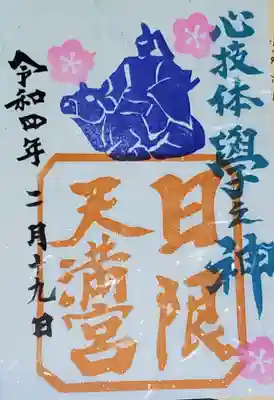 心技体 學之神
日限
天満宮
令和四年 二月十九日